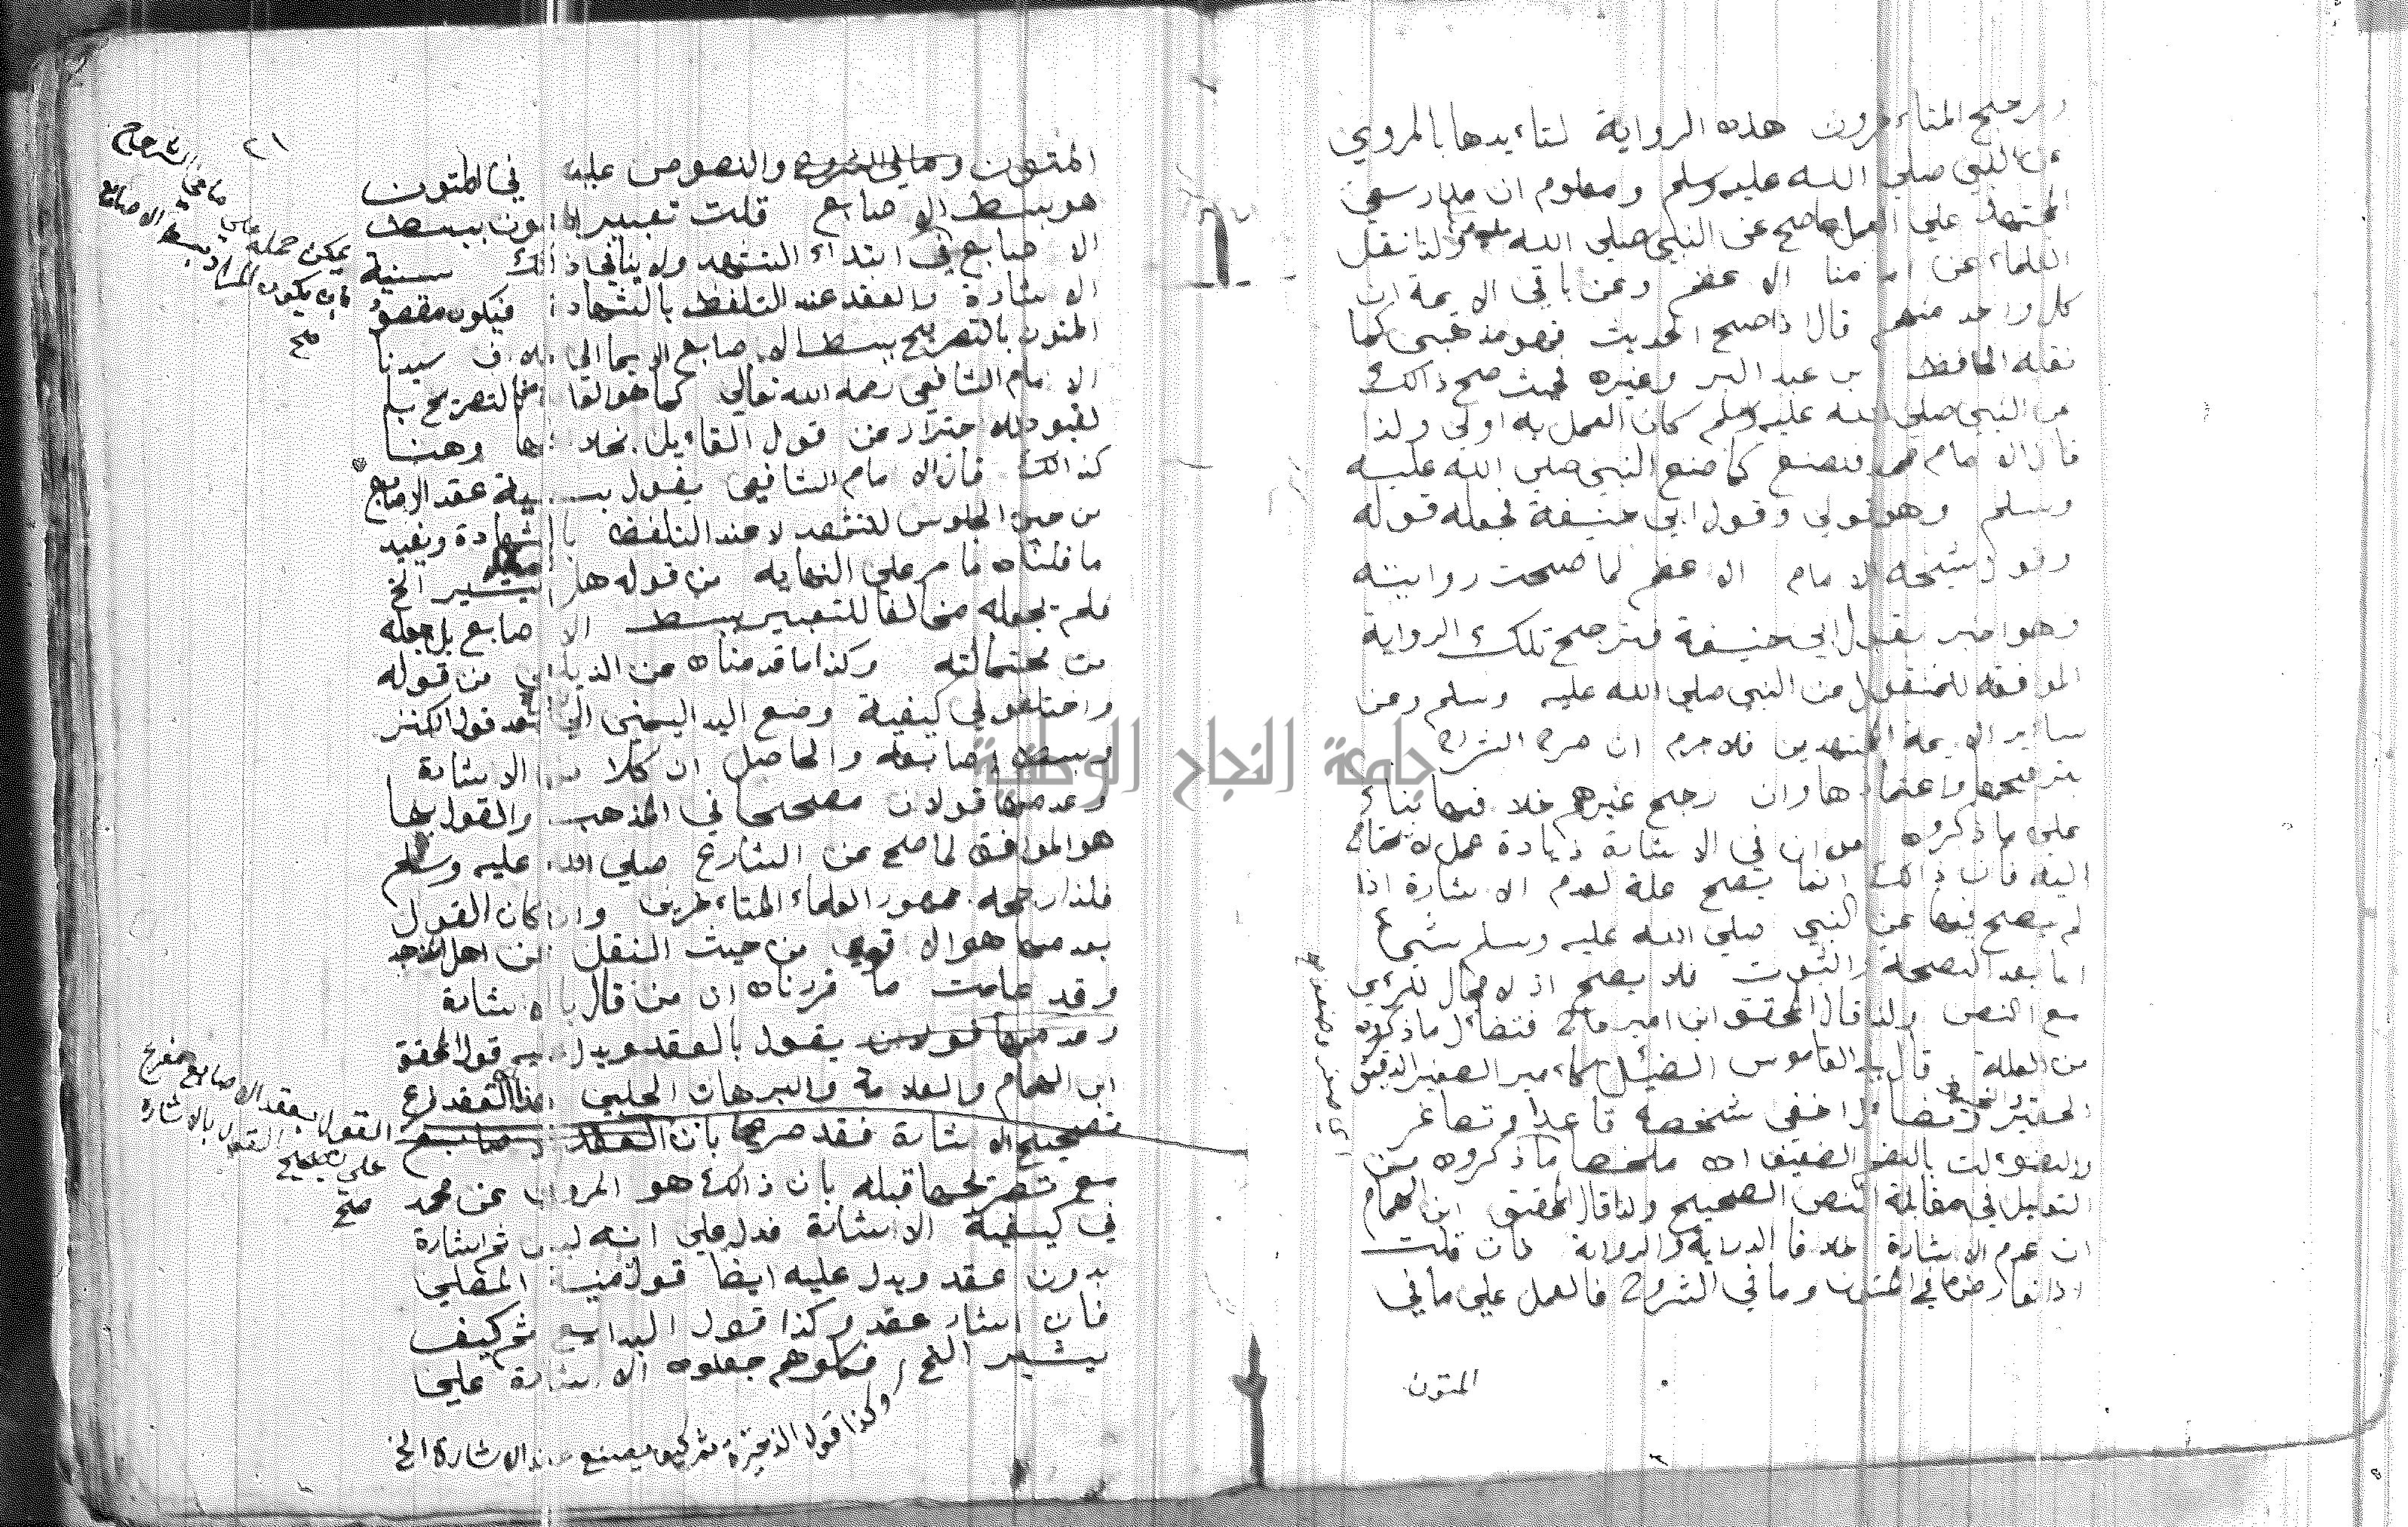 ورجح المتاءخرون هذه الرواية لتاءيدها بالمروي
عن النبي صلي الله عليه وسلم ومعلوم ان مدار سعي
المجتهد علي العمل بما صح عن النبي صلي الله عليه وسلم ولذا نقل
العلماء عن امامنا الاعظم وعن باقي الايمة ان
كل واحد منهم قال اذا صح الحديث فهو مذهبي كما
نقله الحافظ بن عبد البر وغيره فحيث صح ذالك
عن النبي صلي الله عليه وسلم كان العمل به اولي ولذا
قال الامام محمد فنصنع كما صنع النبي صلي الله عليه
وسلم وهو قولي وقول ابي حنيفة فجعله قوله
وقول شيخه الامام الاعظم لما صحت روايته
وهو اخبر بقول ابي حنيفة فترجح تلك الرواية
الموافقه للمنقول عن النبي صلي الله عليه وسلم وعن
ساير الايمة المجتهدين فلاجرم ان صرح الشراح
بترجيحها واعتمادها وان رجح غيرهم خلافها بناء
علي ما ذكروه من ان في الاشارة زيادة عمل لا يحتاج
اليه فان ذالك انما يصح علة لعدم الاشارة اذا
لم يصح فيها عن النبي صلي الله عليه وسلم شيء
اما بعد الصحة والثبوت فلا يصح اذ لا مجال للرءي
مع النص ولذا قال المحقق ابن امير حاج فتضاءل ما ذكروه
من العلة قال في القاموس الضئيل كاءمير الصغير الدقيق
الحقير والنحيف وتضاءل اخفي شخصه قاعدا وتصاغر
والضوءلت بالضم الضعيف اه ملخصا ما ذكروه من
التعليل في مقابلة النص الصحيح ولذا قال المحقق ابن الهمام
ان عدم الاشارة خلاف الدراية والرواية فان قلت
اذا تعارض ما في المتون وما في الشروح فالعمل علي ما في
المتون
اي صغر وضعف
٢١
المتون وما في الشروح والنصوص عليه في المتون
هو بسط الاصابع قلت تعبير المتون ببسط
الاصابع في ابتداء التشهد ولا ينافي ذالك سنية
الاشارة والعقد عند التلفظ بالشهادة فيكون مقصود
المتون بالتصريح ببسط الاصابع الايما الي خلاف سيدنا
الامام الشافعي رحمه الله تعالي كما هو
لقيود للاحتراز عن قول القاءيل بخلافها وهنا
كذالك فان الامام الشافعي يقول بسنية عقد الاصابع
من حين الجلوس للتشهد لا عند التلفظ بالشهادة ويفيد
ما قلناه ما مر علي النهايه من قوله هل يشير الخ
فلم يجعله مخالفا للتعبير ببسط الاصابع بل جعله
من محتملاته وكذا ما قدمناه عن من قوله
واختلفو في كيفية وضع اليد اليمني الخ بعد قول الكنز
وبسط اصابعه والحاصل ان كلا من الاشارة
وعدمها قولان مصححان في المذهب والقول بها
هو الموافق لما صح عن الشارع صلي الله عليه وسلم
فلذا رجحه جمهور العلماء المتاءخرين وان كان القول
بعدمها هو الاقوي من حيث النقل عن اهل المذهب
وقد علمت ما قررناه ان من قال بالاشارة
وعدمها قولان يقول بالعقد ويدل عليه قول المحقق
ابن الهمام والعلامة والبرهان الحلبي هذا العقد فرع
تصحيح الاشارة فقد صرحا بان العقد اصابع
مع تصريحهما قبله بان ذالك هو المروي عن محمد
في كيفية الاشارة فدل علي انه ليس ثم اشارة
بدون عقد ويدل عليه ايضا قول منية المصلي
فان اشار عقد وكذا قول البدايع ثم كيف
يشير الخ فكلوهم جعلوه الاشارة علي
وكذا قول الذخيرة ثم كيف يصنع عند الاشارة الخ
ما في الشرحاح
يمكن حمله علي
بان يكون المراد بسط الاصابع
صح
القول بعقد الاصابع مفرع
علي تصحيح القول بالاشارة
صح
جامعة النجاح الوطنية